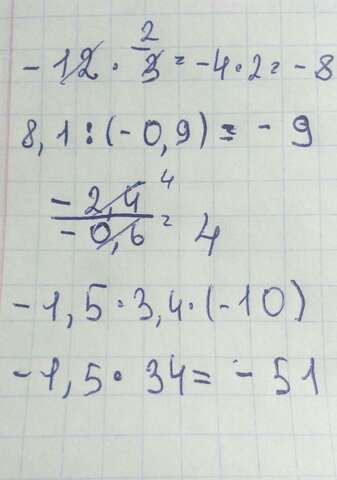 -12 · 2/3 = -4·2 = -8
8,1 : (-0,9) = -9
-2,4/-0,6 4 = 4
-1,5 · 3,4 · (-10)
-1,5 · 34 = -51